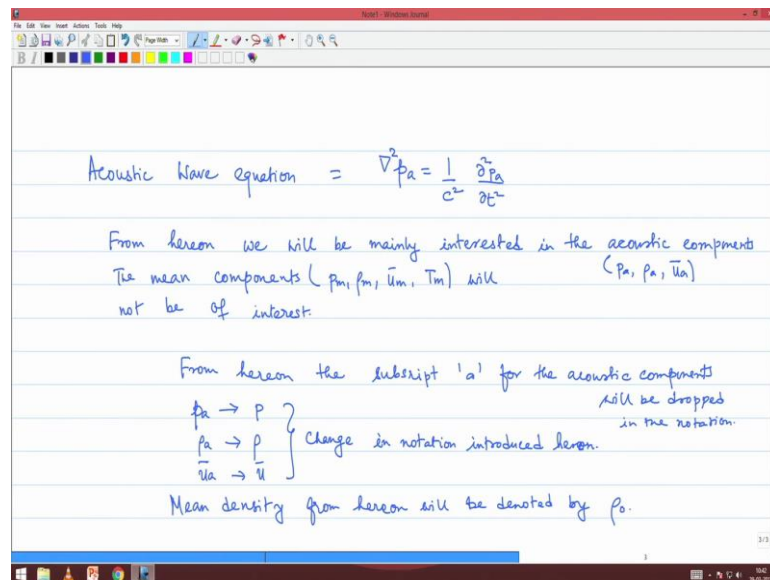 Note1 - Windows Journal
File Edit View Insert Actions Tools Help
Page Width
B I
Acoustic Wave equation = ∇²pa = 1/c² ∂²pa/∂t²
From hereon we will be mainly interested in the acoustic compments
(pa, ρa, ūa)
The mean components (pm, ρm, ūm, Tm) will
not be of interest.
From hereon the subsript 'a' for the acoustic components
will be dropped
in the notation.
pa → p
ρa → ρ
ūa → ū
Change in notation introduced heron.
Mean density from hereon will be denoted by ρ0.
3/3
3
1042